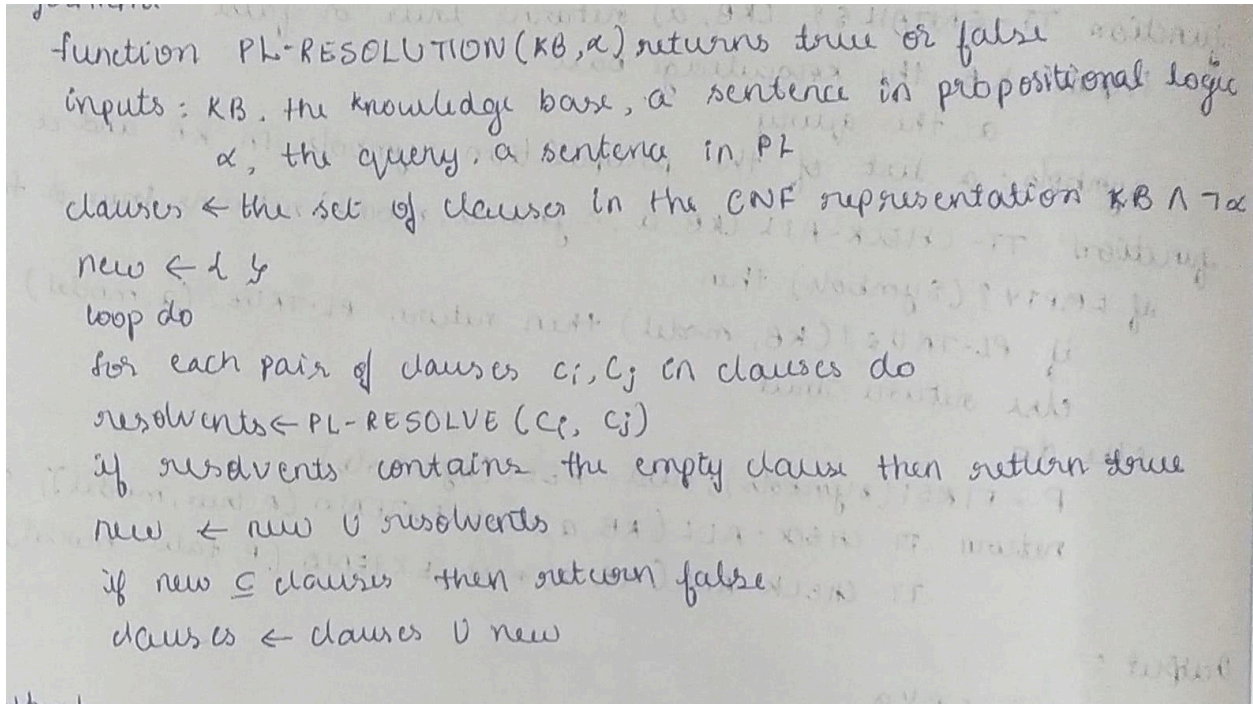 function PL-RESOLUTION(KB,α) returns true or false
inputs : KB. the knowledge base, a sentence in propositional logic
α, the query, a sentence in PL
clauses ← the set of clauses in the CNF representation KB ∧ ¬α
new ← { }
loop do
for each pair of clauses Ci, Cj in clauses do
resolvents ← PL-RESOLVE (Ci, Cj)
if resolvents contains the empty clause then return true
new ← new ∪ resolvents
if new ⊆ clauses then return false
clauses ← clauses ∪ new